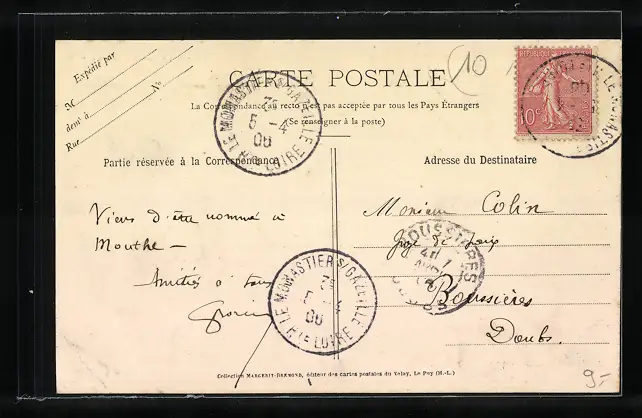 Expédié par
M
demt à
Rue
No
CARTE POSTALE
(10
La Correspondance au recto n'est pas acceptée par tous les Pays Étrangers
(Se renseigner à la poste)
REPUBLIQUE FRANCAISE
10c
LE MONASTIER
LE MONASTIER S/GAZEILLE
3E
5 -4
06
Hte LOIRE
Partie réservée à la Correspondance
Adresse du Destinataire
Viens d'être nommé à
Mouthe —
Amitiés à tous
Monsieur Colin
Juge de Paix
Boussières
Doubs.
LE MONASTIER S/GAZEILLE
3E
5 -4
06
Hte LOIRE
BOUSSIERES
DOUBS
Collection MARGERIT-BRÉMOND, éditeur des cartes postales du Velay, Le Puy (H.-L.)
9-